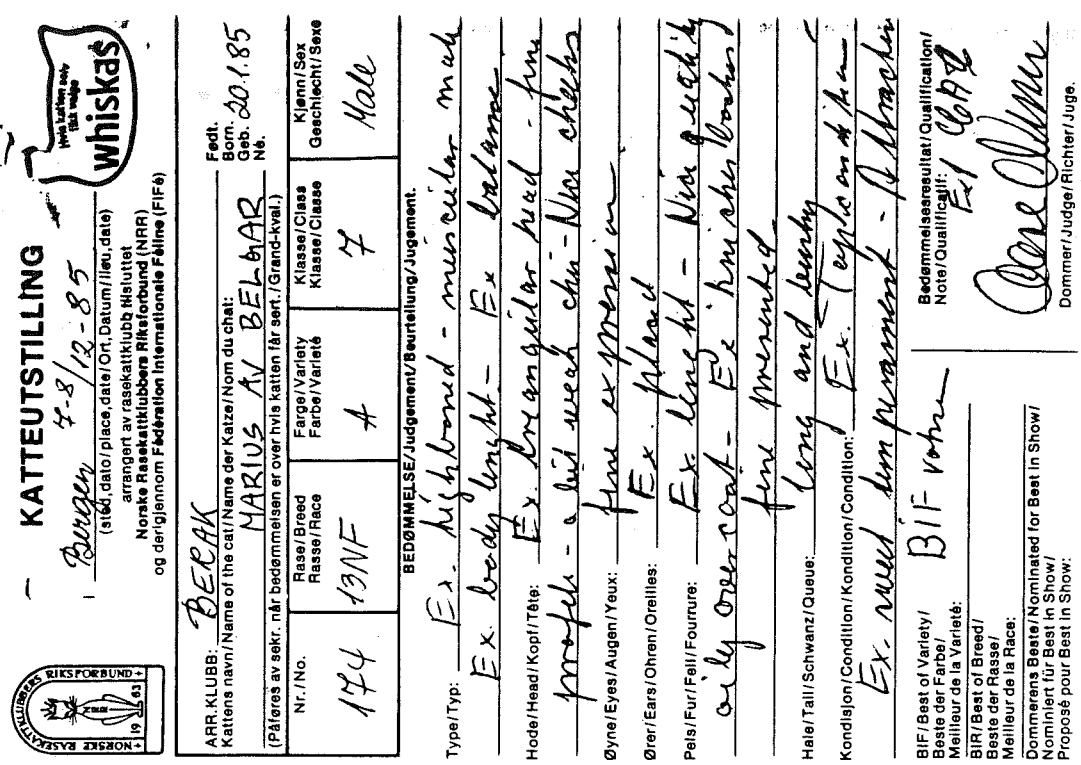 KATTEUTSTILLING
Bergen 7-8/12-85
(sted,dato/place,date/Ort,Datum/lieu,date)
arrangert av rasekattklubb tilsluttet
Norske Rasekattklubbers Riksforbund (NRR)
og derigjennom Fédèration Internationale Féline (FIFé)
NORSKE RASEKATTKLUBBERS RIKSFORBUND
NRR
19 63
Hvis katten selv
fikk velge
whiskas
ARR.KLUBB: BERAK
Kattens navn/Name of the cat/Name der Katze/Nom du chat:
MARIUS AV BELGAR
(Påføres av sekr. når bedømmelsen er over hvis katten får sert./Grand-kval.)
Født.
Born.
Geb. 20.1.85
Né.
Nr./No.
174
Rase/Breed
Rasse/Race
13NF
Farge/Variety
Farbe/Varieté
A
Klasse/Class
Klasse/Classe
7
Kjønn/Sex
Geschlecht/Sexe
Male
BEDØMMELSE/Judgement/Beurteilung/Jugement.
Type/Typ: Ex. highboned - muscular male
Ex. body lenght - Ex balance
Hode/Head/Kopf/Tête: Ex. triangular head - fine
profil - a bit weak chin - Nice cheeks
Øyne/Eyes/Augen/Yeux: fine expression
Ører/Ears/Ohren/Oreilles: Ex. placed
Pels/Fur/Fell/Fourrure: Ex. lenght - Nice quality
oily over coat - Ex knickerbockers
fine presented
Hale/Tail/Schwanz/Queue: long and bushy
Kondisjon/Condition/Kondition/Condition: Ex.
Ex. sweet temperament -
BIF/Best of Variety/
Beste der Farbe/
Meilleur de la Varieté:
BIF
BIR/Best of Breed/
Beste der Rasse/
Meilleur de la Race:
Dommerens Beste/Nominated for Best in Show/
Nominiert für Best in Show/
Proposé pour Best in Show:
Bedømmelsesresultat/Qualification/
Note/Qualificatif: Ex 1 CAC
Dommer/Judge/Richter/Juge.